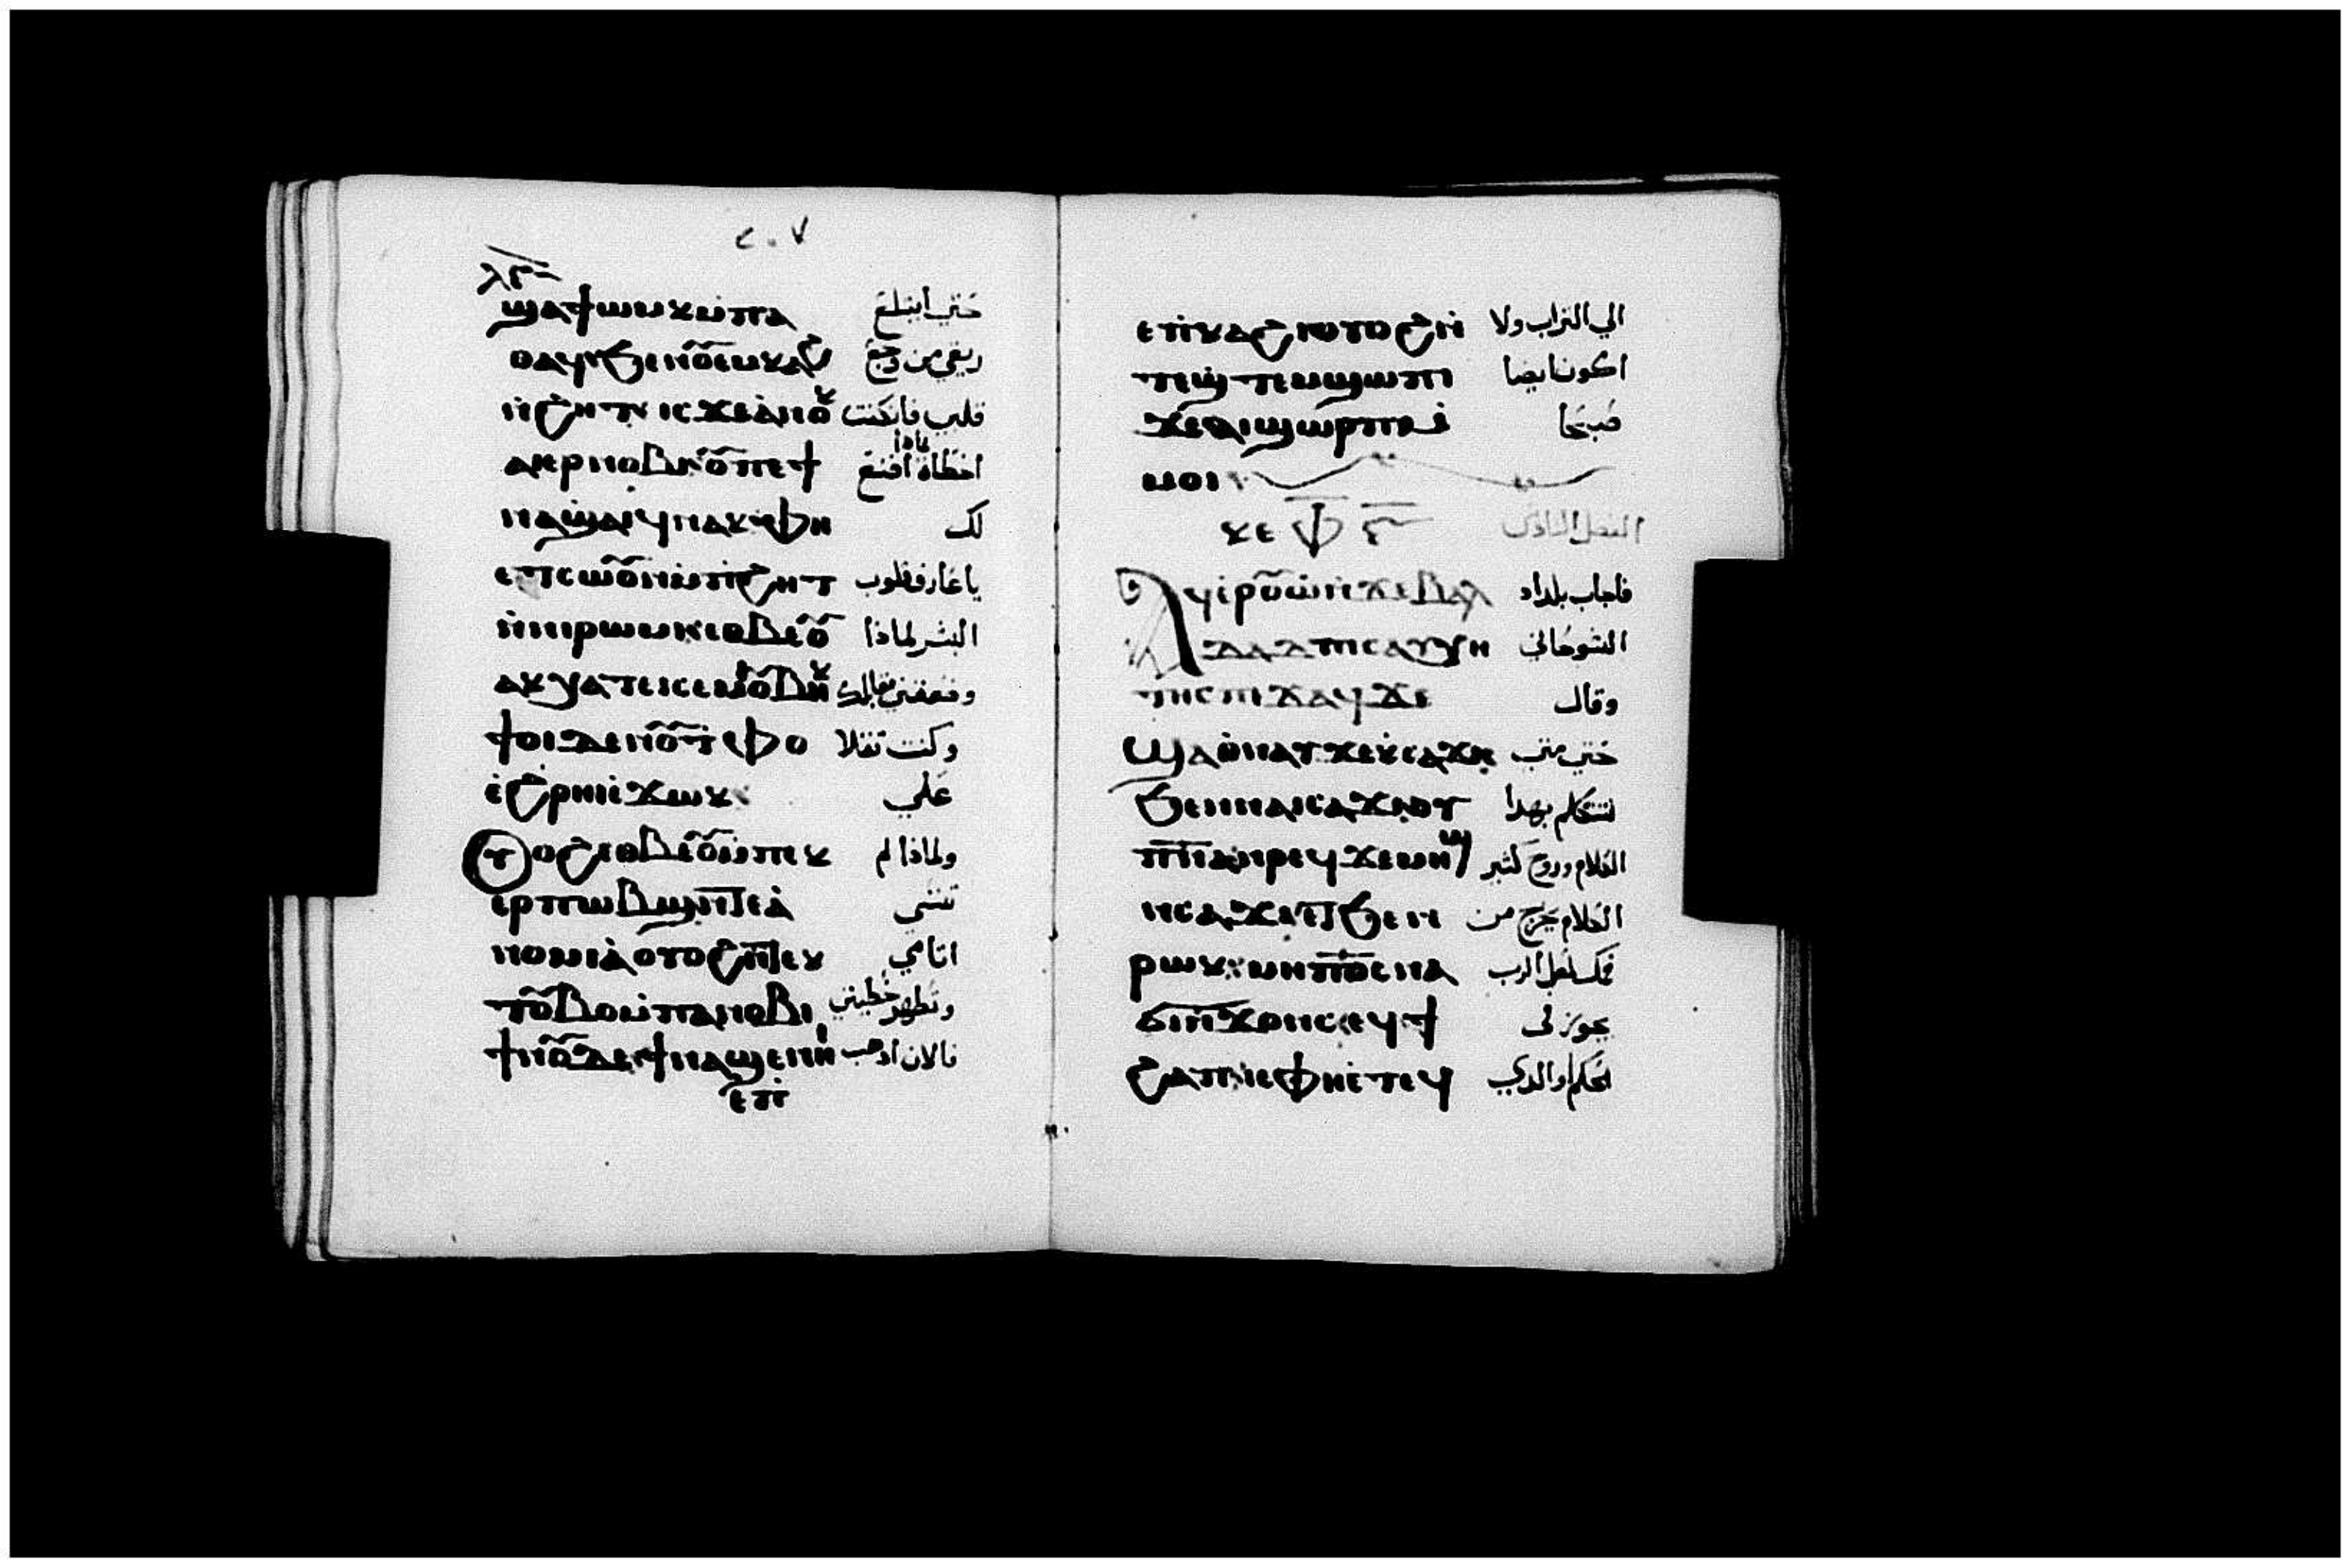 ٢٠٧
ⲗⲅ
ϣⲁϯⲱⲙⲕ ⲙ̇ⲡⲁ حتي ابتلع
ⲑⲁϥ ϧⲉⲛ ⲟⲩⲉⲙⲕⲁϩ ريقي من وجع
ⲛ̇ϩⲏⲧ ⲓⲥϫⲉ ⲁ̀ⲛⲟⲕ قلب فان كنت
ⲁⲓⲉⲣⲛⲟⲃⲓ ⲟⲩ ⲡⲉϯ اخطات ماذا اصنع
ⲛⲁϣⲁⲓϥ ⲛⲁⲕ ⲫⲏ لك
ⲉⲧⲥⲱⲟⲩⲛ ⲙ̇ⲡϩⲏⲧ يا عارف قلوب
ⲛ̇ⲛⲓⲣⲱⲙⲓ ⲉⲑⲃⲉⲟⲩ البشر لماذا
ϯⲟⲓ ⲇⲉ ⲛⲟⲩⲉⲧⲫⲱ وكنت ثقلا
ⲉ̀ϩⲣⲏⲓ ⲉ̀ϫⲱⲕ علي
ⲟⲩⲟϩ ⲉⲑⲃⲉⲟⲩ ⲙ̇ⲡⲉⲕ ولماذا لم
ⲉⲣⲡⲱⲃϣ ⲛⲧⲉⲁ̀ تنسي
ⲛⲟⲙⲓⲁ̀ ⲟⲩⲟϩ ⲛⲧⲉⲕ اثامي
ⲧⲟⲩⲃⲟ ⲙ̇ⲡⲁⲛⲟⲃⲓ وتطهر خطيتي
ϯⲛⲟⲩ ⲇⲉ ϯⲛⲁϣⲉⲛⲏⲓ فالان اذهب
ⲉⲡⲓ
ⲉⲡⲓⲕⲁϩⲓ ⲟⲩⲟϩ ⲛ̇ الي التراب ولا
ⲧⲉϣⲧⲉⲙϣⲱⲡⲓ اكون ايضا
ϫⲉ ϩⲓ ϣⲱⲣⲡ ⲁ̀ صبحا
ⲙⲟⲓ
ⲕⲉⲫ ⲋ الفصل السادس
ⲁϥⲉ̀ⲣⲟⲩⲱ̀ ⲛ̇ϫⲉ ⲃⲁⲗ فاجاب بلداد
ⲇⲁⲇ ⲡⲓⲥⲁⲩⲭⲏ الشوحاني
ⲧⲏⲥ ⲡⲉϫⲁϥ ϫⲉ وقال
ϣⲁ ⲑⲛⲁⲩ ϫⲉ ⲕ̇ⲥⲁϫⲓ حتي متي
ϧⲉⲛ ⲛⲁⲓⲥⲁϫⲓ ⲟⲩ تتكلم بهدا
ⲡⲛⲁ ⲛ̇ⲣⲉϥϫⲉⲙⲏϣ الكلام وروح كثير
ⲛⲥⲁϫⲓ ⲉⲧϧⲉⲛ الكلام يخرج من
ⲣⲱⲕ ⲙⲏ ⲡⲟ̅ⲥ̅ ⲛⲁ فمك لعل الرب
ϭⲓⲛϫⲟⲛⲥ ⲉϥϯ يجوز لي
ϩⲁⲡ ⲓⲉ ⲫⲏⲉ̀ⲧⲉϥ الحكم او الدي